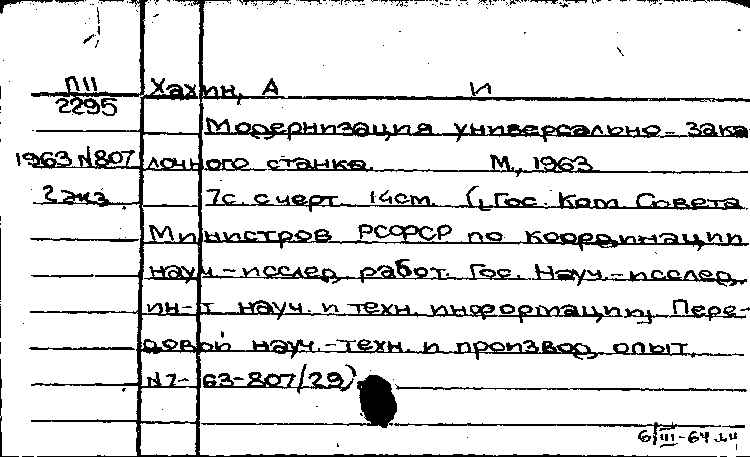 П11 Хахин, А И
2295
Модернизация универсально-зака
1963 №807 лочного станка. М., 1963
2 экз. 7с. с черт. 14см. (Гос. Ком. Совета
Министров РСФСР по координации
науч.-исслед. работ. Гос. Науч.-исслед.
ин-т науч. и техн. информации. Пере-
довой науч.-техн. и производ. опыт.
№7-63-807/29)
6/III-64